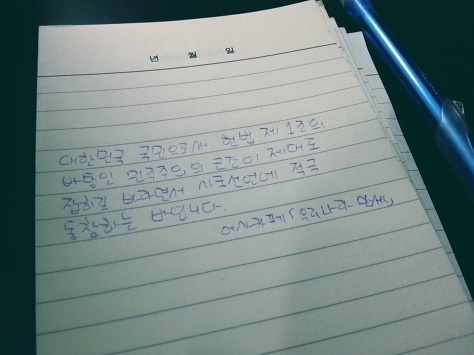 년 월 일
대한민국 국민으로써 헌법 제 1조의
바탕인 민주주의의 근간이 제대로
잡히길 바라면서 시국선언에 적극
동참하는 바입니다.
여사카페「우리나라 만세」